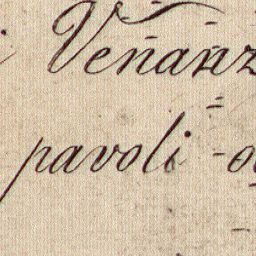 Venanz
pavoli